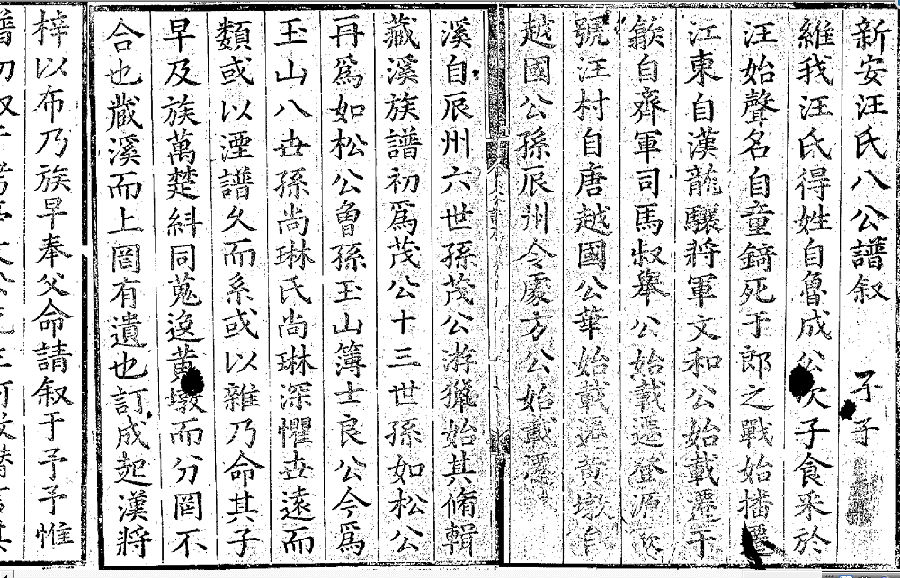 新安汪氏八公譜叙
維我汪氏得姓自魯成公次子食采於
汪始聲名自童錡死于郎之戰始播遷
江東自漢龍驤將軍文和公始載遷于
歙自齊軍司馬叔舉公始載遷登源
號汪村自唐越國公華始載遷黄墩自
越國公孫辰州令處方公始載遷
溪自辰州六世孫茂公游獵始其脩輯
藏溪族譜初爲茂公十三世孫如松公
再爲如松公曾孫玉山簿士良公今爲
玉山八世孫尚琳氏尚琳深懼世遠而
類或以湮譜久而系或以雜乃命其子
早及族萬楚糾同蒐逸黄墩而分罔不
合也藏溪而上罔有遺也訂成起漢將
梓以布乃族早奉父命請叙于予予惟